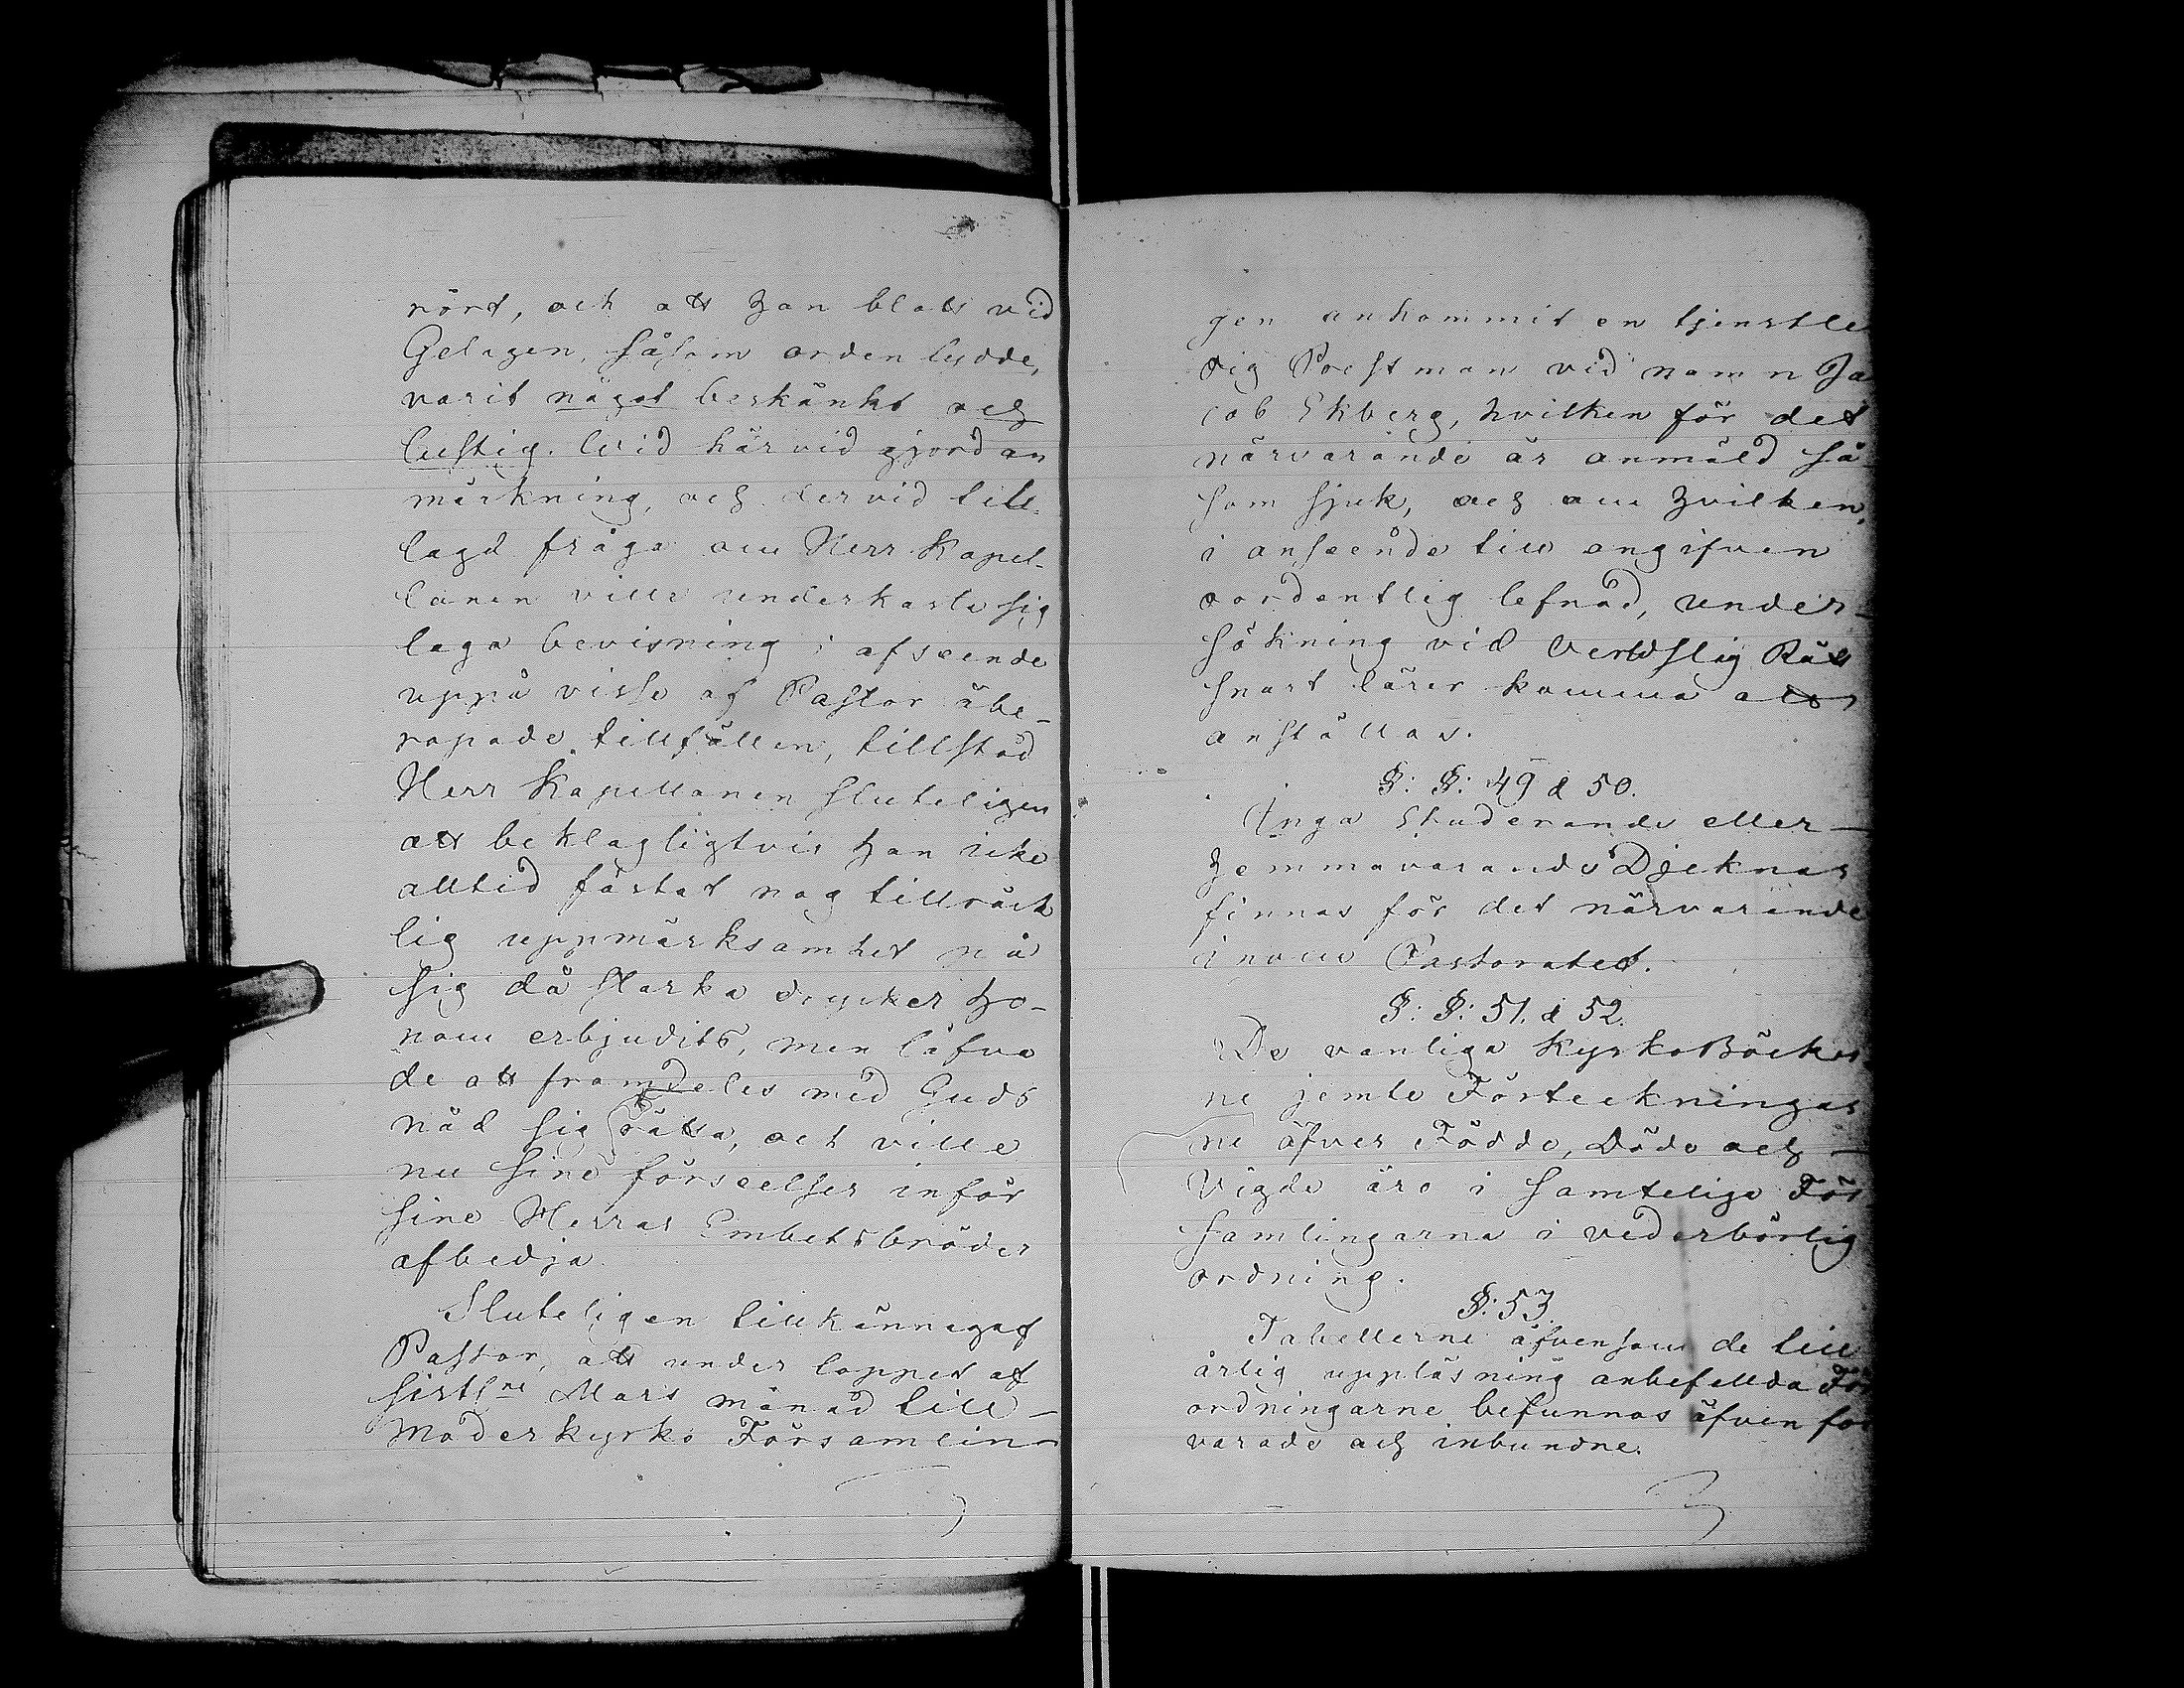 rört, och att han blott vid
Gelagen, såsom orden lydde,
varit något beskänkt och
lustig. Wid härvid gjord an
märkning, och dervid till-
lagd fråga om Herr Kapel-
lanen ville underkasta sig
laga bevisning i afseende
uppå visse af Pastor åbe-
ropade tillfällen, tillstod
Herr Kapellanen sluteligen
att beklagligtvis han icke
alltid fästat nog tillräck
lig uppmärksamhet på
sig då starka drycker ho-
nom erbjudits, men låfva
de att framdeles med Guds
nåd sig rätta, och ville
nu sine förseelser inför
sine Herrar Embetsbröder
afbedja.
Sluteligen tillkännagaf
Pastor, att under loppet af
sistl:ne Mars månad till
Moderkyrko Församlin-
gen ankommit en tjenstle
dig Prestman vid namn Ja
cob Ekberg, hvilken för det
närvarande är anmäld så-
som sjuk, och om hvilken,
i anseende till angifven
oordentlig lefnad, under-
sökning vid Verldslig Rätt
snart lärer komma att
anställas.
§: §: 49 & 50.
Inga Studerande eller
hemmavarande Djeknar
finnas för det närvarande
inom Pastoratet.
§: §: 51. & 52.
De vanliga KyrkoBöcker
ne jemte Förteckningar
ne öfver Födde, Döde och
Vigde äro i samtelige För
samlingarna i vederbörlig
ordning.
§: 53.
Tabellerne äfvensom de till
årlig uppläsning anbefellda För
ordningarne befunnos äfven för
varade och inbundne.